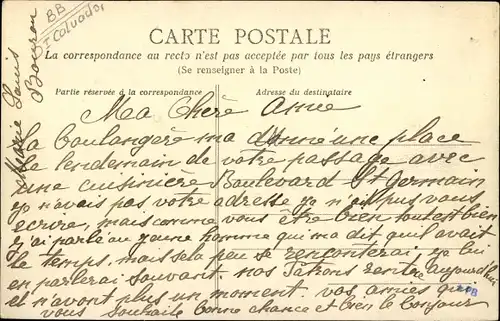 BB
Calvados
CARTE POSTALE
La correspondance au recto n'est pas acceptée par tous les pays étrangers
(Se renseigner à la Poste)
Partie réservée à la correspondance
Adresse du destinataire
Marie Louis
Ma Chère Amie
la boulangère ma donné une place
le lendemain de votre passage avec
une cuisinière Boulevard St Germain
je n'avais pas votre adresse je n'ai pus vous
ecrire, mais comme vous être bien tout est bien
j'ai parlé au jeune homme qui ma dit qu'il avait
le temps, mais sela peu se rencontrerai je lui
en parlerai souvant nos Patrons rentre aujourd'hui
et n'avont plus un moment. vos amies qui
vous souhaite bonne chance et bien le bonjour